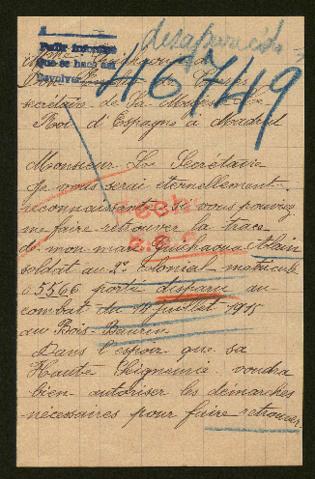 desaparecido
Pedir informes
que se haga así
devolver
46749
secrétaire de Sa Majesté le
Roi d'Espagne à Madrid
Monsieur Le Secrétaire
Je vous serai éternellement
reconnaissante si vous pouviez
me faire retrouver la trace
de mon mari Alain
soldat au 2e Colonial matricule
5566 porté disparu au
combat du 14 juillet 1915
au Bois-Baurin
Dans l'espoir que sa
Haute Seigneurie voudra
bien autoriser les démarches
nécessaires pour faire retrouver